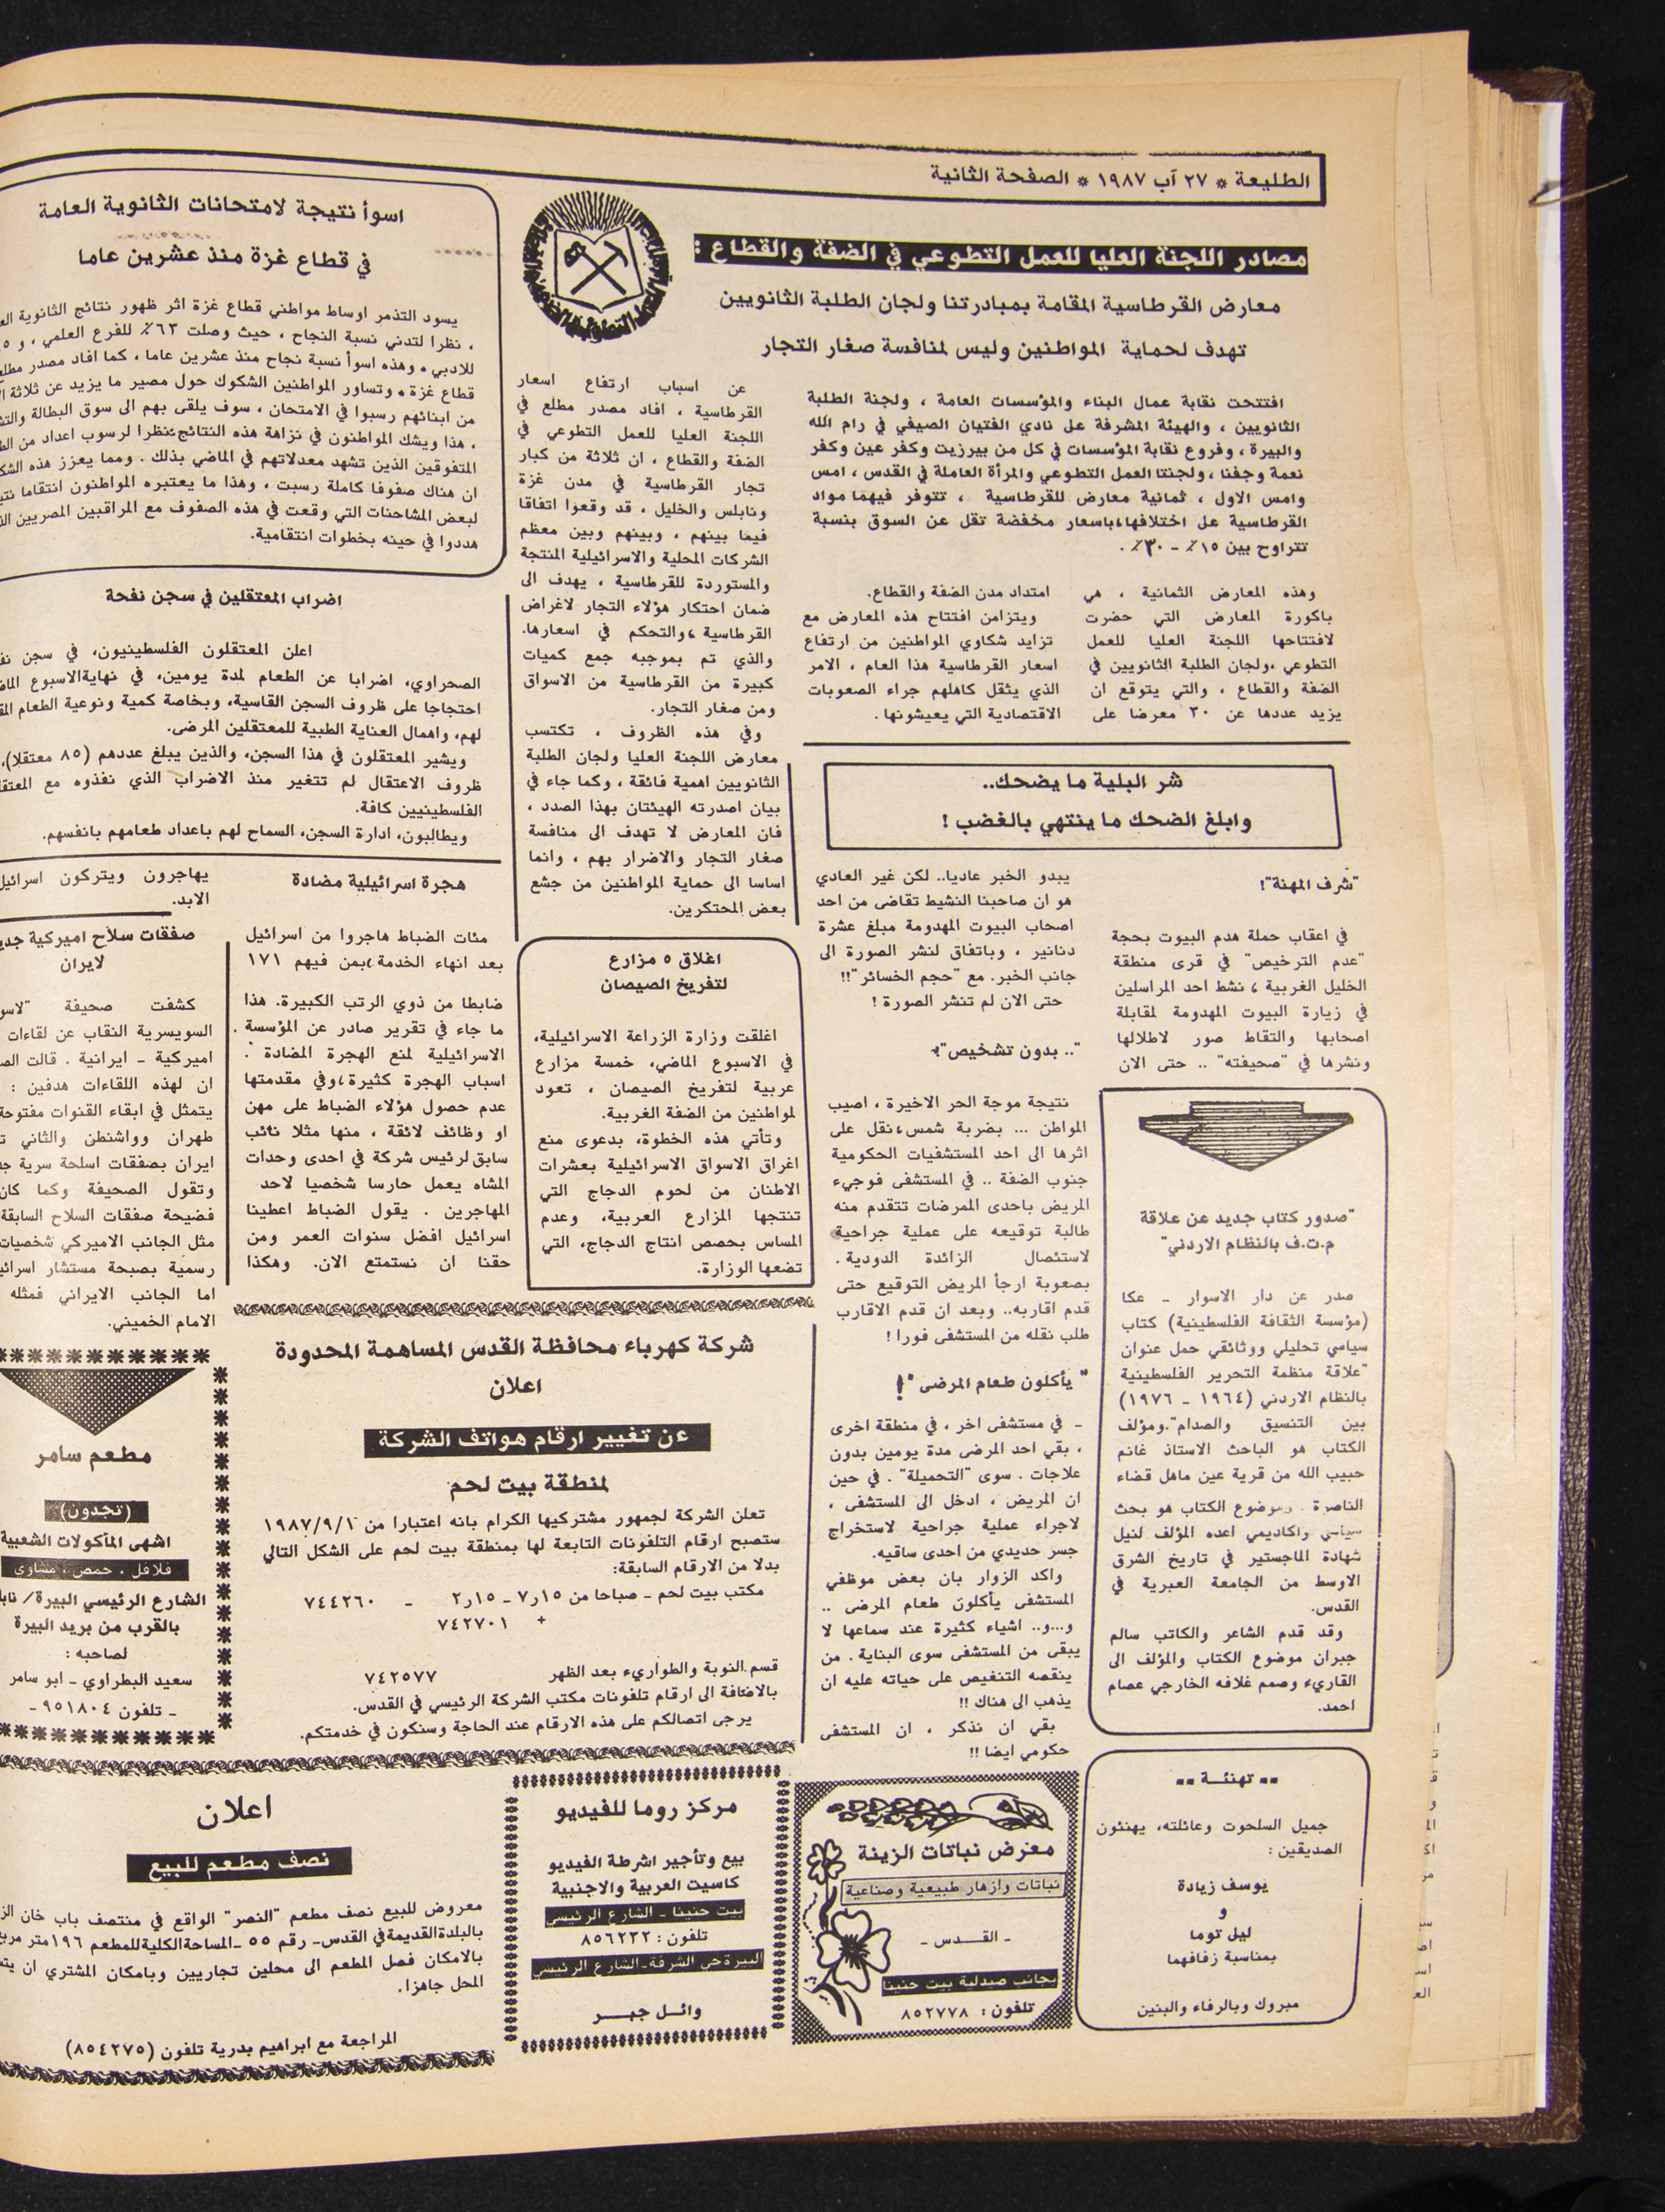 الطليعة * ٢٧ آب ١٩٨٧ * الصفحة الثانية
مصادر اللجنة العليا للعمل التطوعي في الضفة والقطاع :
معارض القرطاسية المقامة بمبادرتنا ولجان الطلبة الثانويين
تهدف لحماية المواطنين وليس لمنافسة صغار التجار
افتتحت نقابة عمال البناء والمؤسسات العامة ، ولجنة الطلبة
الثانويين ، والهيئة المشرفة على نادي الفتيان الصيفي في رام الله
والبيرة ، وفروع نقابة المؤسسات في كل من بيرزيت وكفر عين وكفر
نعمة وجفنا ، ولجنتا العمل التطوعي والمرأة العاملة في القدس ، امس
وامس الاول ، ثمانية معارض للقرطاسية ، تتوفر فيهما مواد
القرطاسية على اختلافها، باسعار مخفضة تقل عن السوق بنسبة
تتراوح بين ١٥٪ - ٣٠٪ .
وهذه المعارض الثمانية ، هي
باكورة المعارض التي حضرت
لافتتاحها اللجنة العليا للعمل
التطوعي ،ولجان الطلبة الثانويين في
الضفة والقطاع ، والتي يتوقع ان
يزيد عددها عن ٣٠ معرضا على
امتداد مدن الضفة والقطاع.
ويتزامن افتتاح هذه المعارض مع
تزايد شكاوي المواطنين من ارتفاع
اسعار القرطاسية هذا العام ، الامر
الذي يثقل كاهلهم جراء الصعوبات
الاقتصادية التي يعيشونها .
عن اسباب ارتفاع اسعار
القرطاسية ، افاد مصدر مطلع في
اللجنة العليا للعمل التطوعي في
الضفة والقطاع ، ان ثلاثة من كبار
تجار القرطاسية في مدن غزة
ونابلس والخليل ، قد وقعوا اتفاقا
فيما بينهم ، وبينهم وبين معظم
الشركات المحلية والاسرائيلية المنتجة
والمستوردة للقرطاسية ، يهدف الى
ضمان احتكار هؤلاء التجار لاغراض
القرطاسية ،والتحكم في اسعارها.
والذي تم بموجبه جمع كميات
كبيرة من القرطاسية من الاسواق
ومن صغار التجار.
وفي هذه الظروف ، تكتسب
معارض اللجنة العليا ولجان الطلبة
الثانويين اهمية فائقة ، وكما جاء في
بيان اصدرته الهيئتان بهذا الصدد ،
فان المعارض لا تهدف الى منافسة
صغار التجار والاضرار بهم ، وانما
اساسا الى حماية المواطنين من جشع
بعض المحتكرين.
اسوأ نتيجة لامتحانات الثانوية العامة
في قطاع غزة منذ عشرين عاما
يسود التذمر اوساط مواطني قطاع غزة اثر ظهور نتائج الثانوية
، نظرا لتدني نسبة النجاح ، حيث وصلت ٦٣٪ للفرع العلمي ، و
للادبي . وهذه اسوأ نسبة نجاح منذ عشرين عاما ، كما افاد مصدر
قطاع غزة . وتساور المواطنين الشكوك حول مصير ما يزيد عن ثلاثة
من ابنائهم رسبوا في الامتحان ، سوف يلقى بهم الى سوق البطالة
، هذا ويشك المواطنون في نزاهة هذه النتائج، نظرا لرسوب اعداد من
المتفوقين الذين تشهد معدلاتهم في الماضي بذلك . ومما يعزز هذه
ان هناك صفوفا كاملة رسبت ، وهذا ما يعتبره المواطنون انتقاما
لبعض المشاحنات التي وقعت في هذه الصفوف مع المراقبين المصريين
هددوا في حينه بخطوات انتقامية.
اضراب المعتقلين في سجن نفحة
اعلن المعتقلون الفلسطينيون، في سجن
الصحراوي، اضرابا عن الطعام لمدة يومين، في نهاية الاسبوع
احتجاجا على ظروف السجن القاسية، وبخاصة كمية ونوعية الطعام
لهم، واهمال العناية الطبية للمعتقلين المرضى.
ويشير المعتقلون في هذا السجن، والذين يبلغ عددهم (٨٥ معتقلا)،
ظروف الاعتقال لم تتغير منذ الاضراب الذي نفذوه مع
الفلسطينيين كافة.
ويطالبون، ادارة السجن، السماح لهم باعداد طعامهم بانفسهم.
شر البلية ما يضحك..
وابلغ الضحك ما ينتهي بالغضب !
"شرف المهنة"!
في اعقاب حملة هدم البيوت بحجة
"عدم الترخيص" في قرى منطقة
الخليل الغربية ، نشط احد المراسلين
في زيارة البيوت المهدومة لمقابلة
اصحابها والتقاط صور لاطلالها
ونشرها في "صحيفته" .. حتى الان
يبدو الخبر عاديا.. لكن غير العادي
هو ان صاحبنا النشيط تقاضى من احد
اصحاب البيوت المهدومة مبلغ عشرة
دنانير ، وباتفاق لنشر الصورة الى
جانب الخبر. مع "حجم الخسائر"!!
حتى الان لم تنشر الصورة !
".. بدون تشخيص"؟
نتيجة موجة الحر الاخيرة ، اصيب
المواطن ... بضربة شمس، نقل على
اثرها الى احد المستشفيات الحكومية
جنوب الضفة .. في المستشفى فوجيء
المريض باحدى الممرضات تتقدم منه
طالبة توقيعه على عملية جراحية
لاستئصال الزائدة الدودية .
بصعوبة ارجأ المريض التوقيع حتى
قدم اقاربه.. وبعد ان قدم الاقارب
طلب نقله من المستشفى فورا !
" يأكلون طعام المرضى "!
- في مستشفى اخر ، في منطقة اخرى
، بقي احد المرضى مدة يومين بدون
علاجات . سوى "التحميلة" . في حين
ان المريض ، ادخل الى المستشفى ،
لاجراء عملية جراحية لاستخراج
جسر حديدي من احدى ساقيه.
واكد الزوار بان بعض موظفي
المستشفى يأكلون طعام المرضى ..
و...و.. اشياء كثيرة عند سماعها لا
يبقى من المستشفى سوى البناية . من
ينقصه التنغيص على حياته عليه ان
يذهب الى هناك !!
بقي ان نذكر ، ان المستشفى
حكومي ايضا !!
"صدور كتاب جديد عن علاقة
م.ت.ف بالنظام الاردني"
صدر عن دار الاسوار - عكا
(مؤسسة الثقافة الفلسطينية) كتاب
سياسي تحليلي ووثائقي حمل عنوان
"علاقة منظمة التحرير الفلسطينية
بالنظام الاردني (١٩٦٤ - ١٩٧٦)
بين التنسيق والصدام".ومؤلف
الكتاب هو الباحث الاستاذ غانم
حبيب الله من قرية عين ماهل قضاء
الناصرة . وموضوع الكتاب هو بحث
سياسي واكاديمي اعده المؤلف لنيل
شهادة الماجستير في تاريخ الشرق
الاوسط من الجامعة العبرية في
القدس.
وقد قدم الشاعر والكاتب سالم
جبران موضوع الكتاب والمؤلف الى
القاريء وصمم غلافه الخارجي عصام
احمد.
اغلاق ٥ مزارع
لتفريخ الصيصان
اغلقت وزارة الزراعة الاسرائيلية،
في الاسبوع الماضي، خمسة مزارع
عربية لتفريخ الصيصان ، تعود
لمواطنين من الضفة الغربية.
وتأتي هذه الخطوة، بدعوى منع
اغراق الاسواق الاسرائيلية بعشرات
الاطنان من لحوم الدجاج التي
تنتجها المزارع العربية، وعدم
المساس بحصص انتاج الدجاج، التي
تضعها الوزارة.
هجرة اسرائيلية مضادة
مئات الضباط هاجروا من اسرائيل
بعد انهاء الخدمة ،بمن فيهم ١٧١
ضابطا من ذوي الرتب الكبيرة. هذا
ما جاء في تقرير صادر عن المؤسسة
الاسرائيلية لمنع الهجرة المضادة .
اسباب الهجرة كثيرة ،وفي مقدمتها
عدم حصول هؤلاء الضباط على مهن
او وظائف لائقة ، منها مثلا نائب
سابق لرئيس شركة في احدى وحدات
المشاه يعمل حارسا شخصيا لاحد
المهاجرين . يقول الضباط اعطينا
اسرائيل افضل سنوات العمر ومن
حقنا ان نستمتع الان. وهكذا
يهاجرون ويتركون اسرائيل
الابد.
صفقات سلاح اميركية
لايران
كشفت صحيفة
السويسرية النقاب عن لقاءات
اميركية - ايرانية . قالت
ان لهذه اللقاءات هدفين :
يتمثل في ابقاء القنوات مفتوحة
طهران وواشنطن والثاني
ايران بصفقات اسلحة سرية
وتقول الصحيفة وكما كان
فضيحة صفقات السلاح السابقة
مثل الجانب الاميركي شخصيات
رسمية بصبحة مستشار
اما الجانب الايراني فمثله
الامام الخميني.
شركة كهرباء محافظة القدس المساهمة المحدودة
اعلان
عن تغيير ارقام هواتف الشركة
لمنطقة بيت لحم
تعلن الشركة لجمهور مشتركيها الكرام بانه اعتبارا من ١٩٨٧/٩/١
ستصبح ارقام التلفونات التابعة لها بمنطقة بيت لحم على الشكل التالي
بدلا من الارقام السابقة:
مكتب بيت لحم - صباحا من ٧ر١٥ - ٢ر١٥ - ٧٤٤٢٦٠
+ ٧٤٢٧٠١
قسم النوبة والطواريء بعد الظهر ٧٤٢٥٧٧
بالاضافة الى ارقام تلفونات مكتب الشركة الرئيسي في القدس.
يرجى اتصالكم على هذه الارقام عند الحاجة وسنكون في خدمتكم.
مطعم سامر
(تجدون)
اشهى المآكولات الشعبية
فلافل ، حمص ، مشاوي
الشارع الرئيسي البيرة/
بالقرب من بريد البيرة
لصاحبه :
سعيد البطراوي - ابو سامر
- تلفون ٩٥١٨٠٤ -
تهنئـة
جميل السلحوت وعائلته، يهنئون
الصديقين :
يوسف زيادة
و
ليل توما
بمناسبة زفافهما
مبروك وبالرفاء والبنين
معرض نباتات الزينة
نباتات وازهار طبيعية وصناعية
- القـــدس -
بجانب صيدلية بيت حنينا
تلفون : ٨٥٢٧٧٨
مركز روما للفيديو
بيع وتأجير اشرطة الفيديو
كاسيت العربية والاجنبية
بيت حنينا - الشارع الرئيسي
تلفون : ٨٥٦٢٣٢
البيرة حي الشرفة - الشارع الرئيسي
وائــل جبــــر
اعلان
نصف مطعم للبيع
معروض للبيع نصف مطعم "النصر" الواقع في منتصف باب خان
بالبلدة القديمة في القدس- رقم ٥٥ -المساحة الكلية للمطعم ١٩٦ متر
بالامكان فصل المطعم الى محلين تجاريين وبامكان المشتري ان
المحل جاهزا.
المراجعة مع ابراهيم بدرية تلفون (٨٥٤٢٧٥)